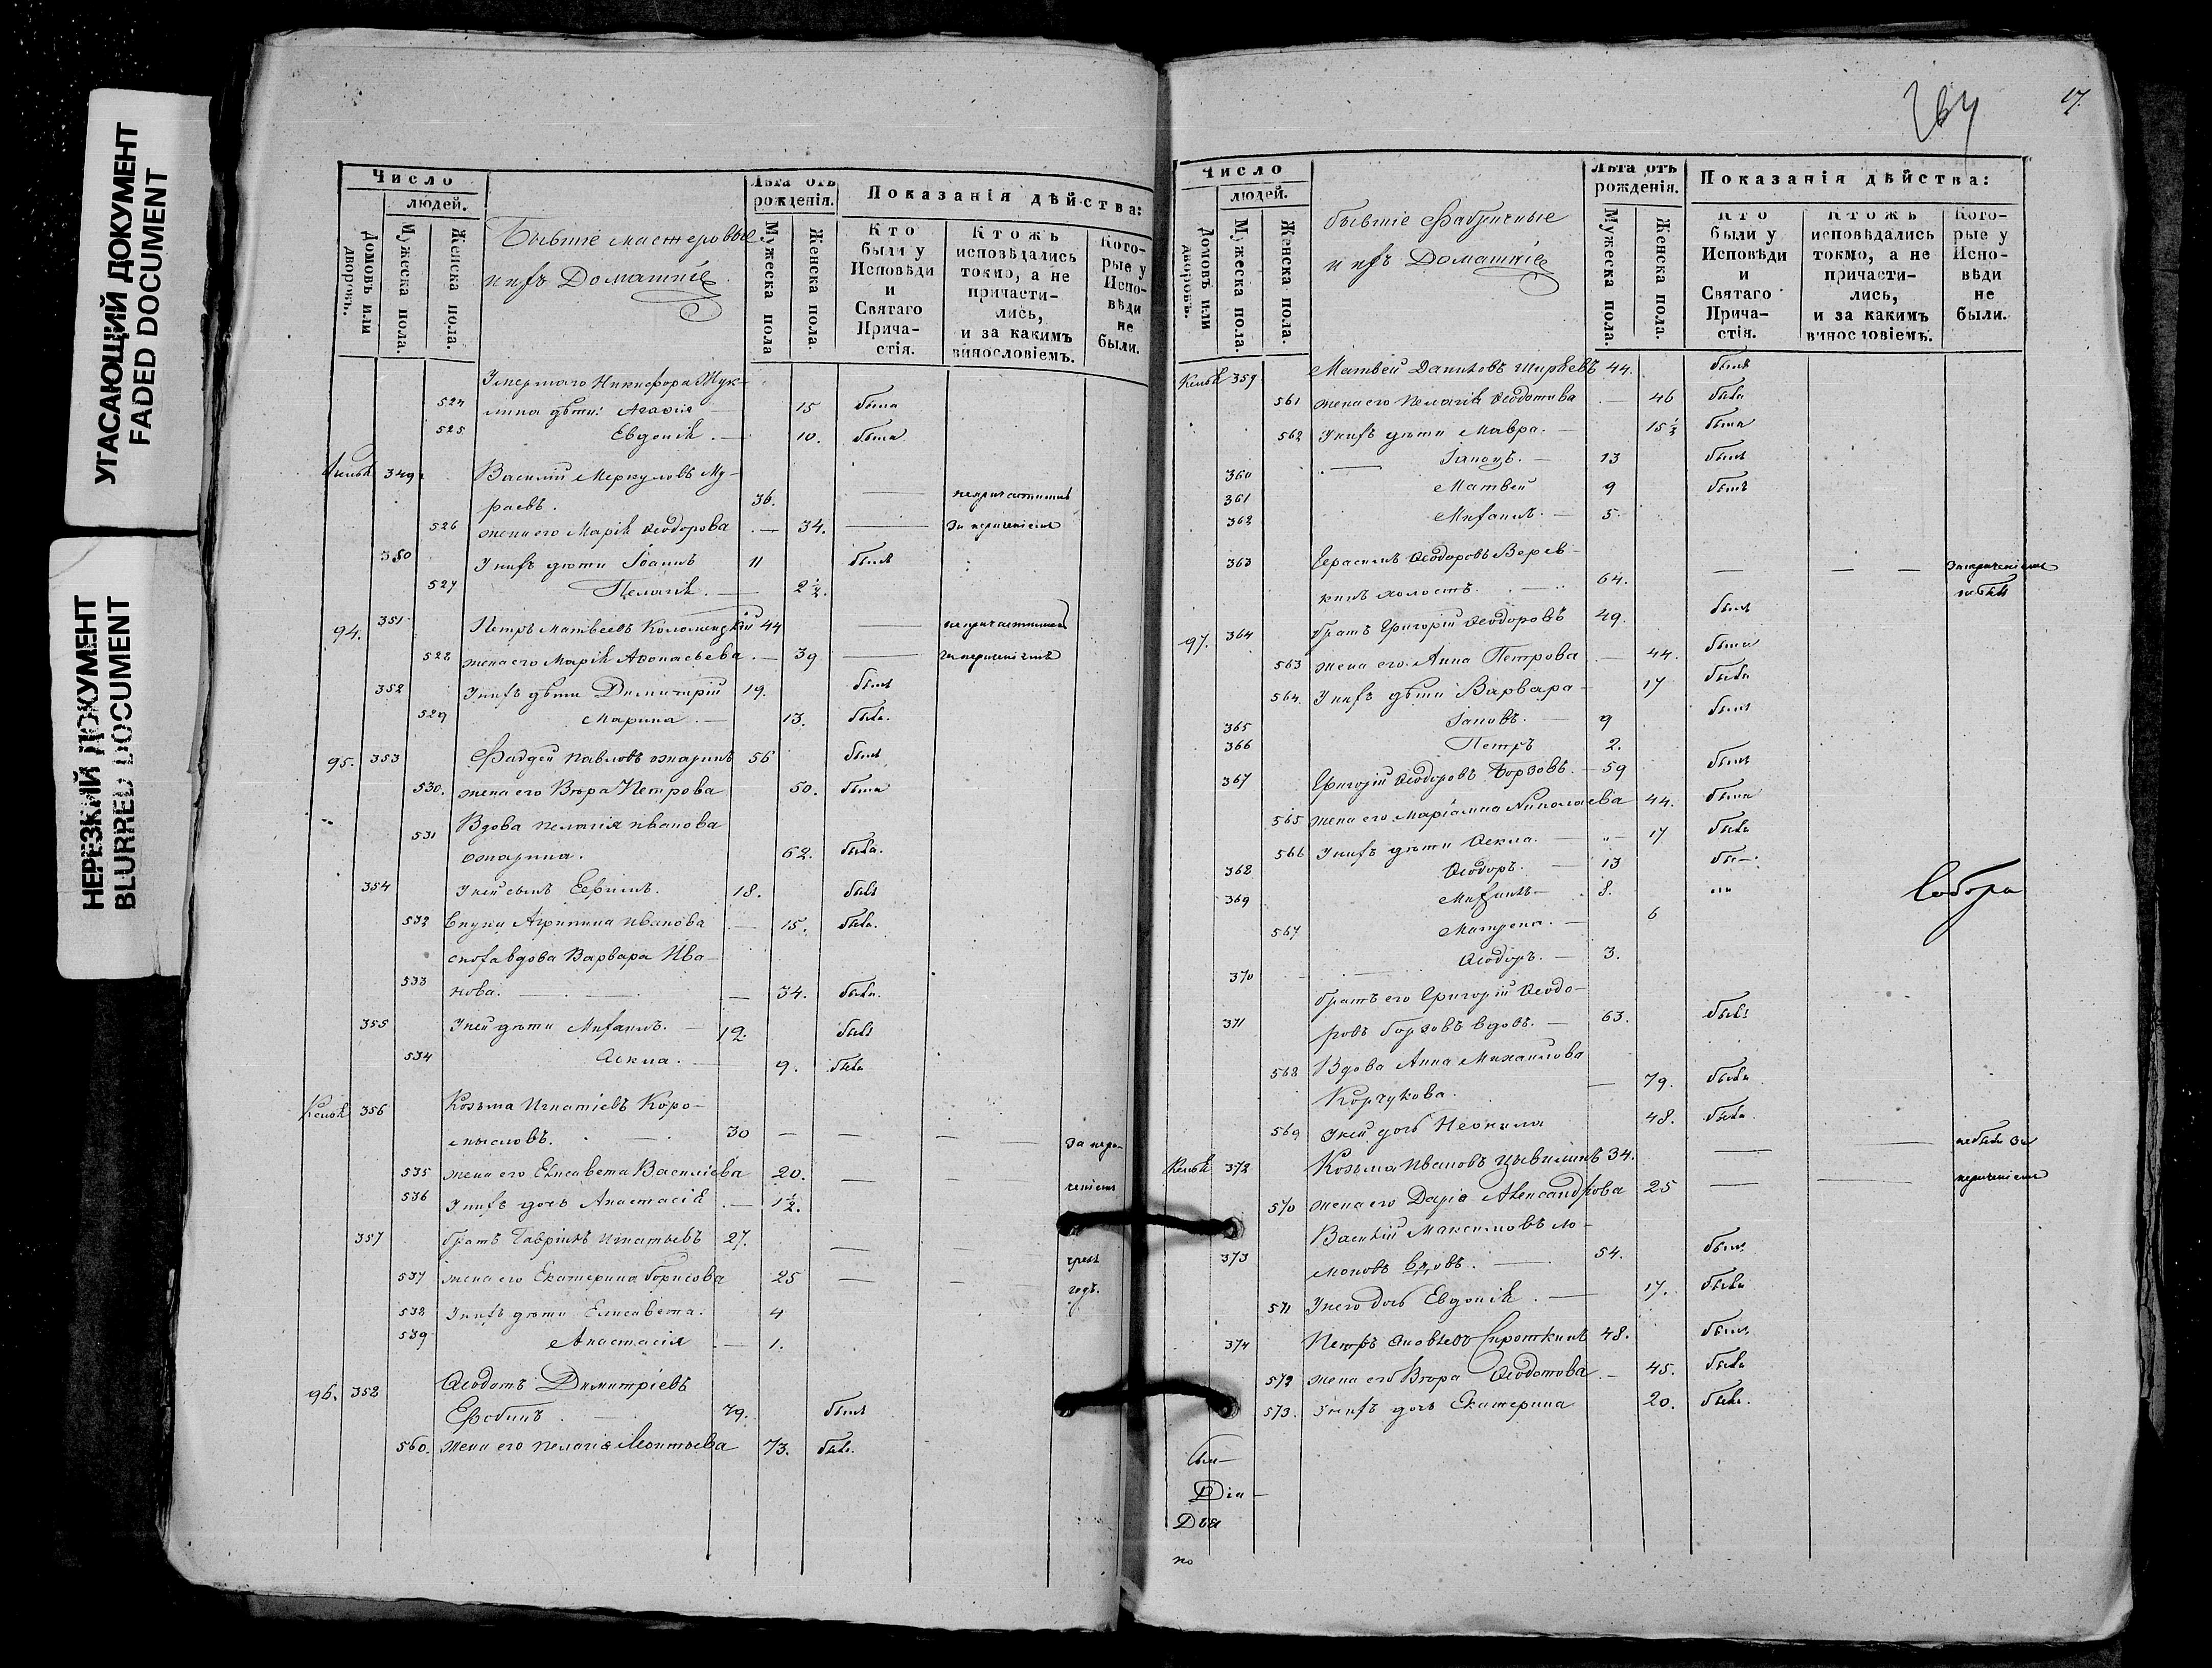 УГАСАЮЩИЙ ДОКУМЕНТ
FADED DOCUMENT
НЕРЕЗКИЙ ДОКУМЕНТ
BLURRED DOCUMENT
Число
людей.
Домовъ или дворовъ.
Мужеска пола.
Женска пола.
Бывшіе мастеровые
и ихъ Домашніе
Лѣта отъ рожденія.
Мужеска пола
Женска пола.
Показанія дѣйства:
Кто были у Исповѣди и Святаго Прича-стія.
Ктожъ исповѣдались токмо, а не причасти-лись, и за какимъ винословіемъ.
Кото-рые у Испо-вѣди не были.
Умершаго Никифора Мук-
524 лина дѣти: Агафія 15 была
525 Евдокія 10. была
349 Василій Меркуловъ Му-
раевъ. 36. непричастились
526 жена его Марія Ѳеодорова 34. за нерченіемъ
350 У нихъ дѣти Іоаннъ 11 былъ
527 Пелагія 2 1/2.
94. 351 Петръ Матвеевъ Коломенскій 44 непричастились
528 жена его Марія Аѳонасьева 39
352 У нихъ дѣти Димитрій 19. былъ
529 Марина 13. была.
95. 353 Фаддей Павловъ 56 былъ
530. жена его Вѣра Петрова 50. была
531 Вдова Пелагія Иванова
62. была.
354 У ней сынъ Ефимъ. 18. былъ
532 Внука Агрипина Иванова 15. была.
сноха вдова Варвара Ива-
533 нова. 34. была.
355 У ней дѣти Михаилъ. 12. былъ
534 Ѳекла. 9. была
356 Козьма Игнатіевъ Коро-
мысловъ. 30 За неро-
535 жена его Елисавета Василіева 20. ченіемъ
536 У нихъ дочь Анастасія 1 1/2.
357 братъ Гавріилъ Игнатьевъ 27.
537 жена его Екатерина Борисова 25
538 У нихъ дѣти Елисавета. 4
539 Анастасія 1.
96. 358 Ѳеодотъ Димитріевъ
79. былъ
560. жена его Пелагія Леонтьева 73. была.
17.
Число
людей.
Домовъ или дворовъ.
Мужеска пола.
Женска пола.
бывшіе Фабричные
и ихъ Домашніе
Лѣта отъ рожденія.
Мужеска пола.
Женска пола.
Показанія дѣйства:
Кто были у Исповѣди и Святаго Прича-стія.
Ктожъ исповѣдались токмо, а не причасти-лись, и за какимъ винословіемъ.
Кото-рые у Испо-вѣди не были.
359 Матвей Даниловъ Ширяевъ 44. былъ
561 жена его Пелагія Ѳеодотова 46 была
562 У нихъ дѣти Мавра. 15 1/2 была
360 Іаковъ. 13 былъ
361 Матвей 9 былъ
362 Михаилъ. 5.
363 Герасимъ Ѳеодоровъ Верев-
кинъ холостъ. 64.
97. 364 братъ Григорій Ѳеодоровъ 49. былъ
563 жена его Анна Петрова 44. была
564. У нихъ дѣти Варвара 17 была
365 Іаковъ. 9 былъ
366 Петръ 2.
367 Григорій Ѳеодоровъ Борзовъ. 59 былъ
565 жена его Маріамна Николаева 44. была
566 У нихъ дѣти Ѳекла. 17 была
368 Ѳеодоръ. 13 бы-
369 Михаилъ 8.
Собора
567 Матрена. 6
370 Ѳеодоръ. 3.
братъ его Григорій Ѳеодо-
371 ровъ Борзовъ вдовъ. 63. былъ
568 Вдова Анна Михаилова
Корчукова. 79. была
569 У ней дочь Неонила 48. была
372 Козьма Ивановъ Цывилинъ 34. небыли за
570 жена его Дарія Александрова 25 нерченіемъ
Василій Максимовъ Ло-
373 моновъ вдовъ. 54. былъ
571 У него дочь Евдокія 17. была
374 Петръ Яковлевъ Сироткинъ 48. былъ
572 жена его Вѣра Ѳеодотова. 45. была
573. У нихъ дочь Екатерина 20. была.
Діа-
по